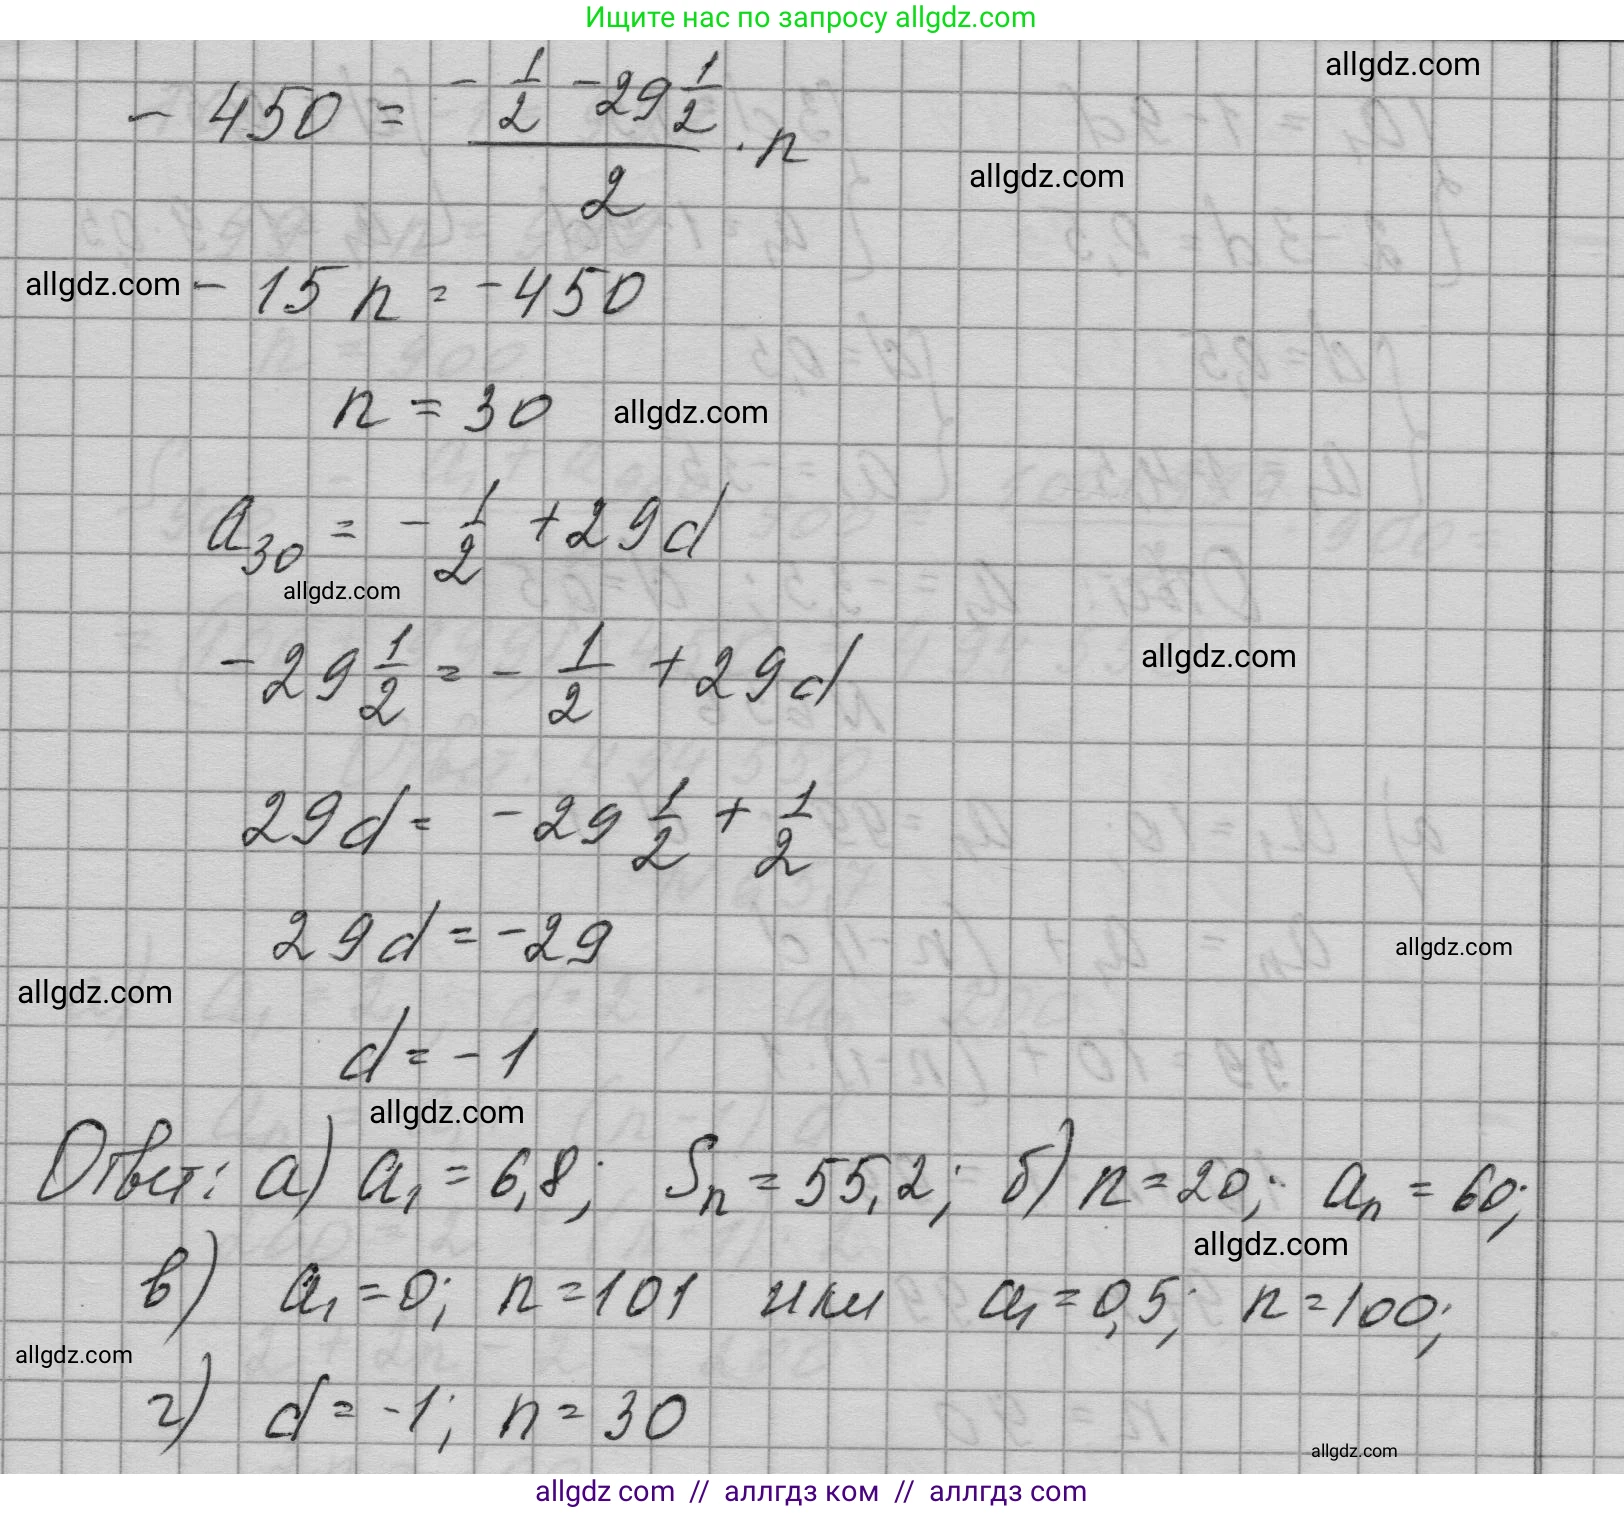 Ищите нас по запросу allgdz.com
allgdz.com
- 450 = (- 1/2 - 29 1/2) / 2 · n
allgdz.com
allgdz.com
- 15 n = - 450
n = 30
allgdz.com
a₃₀ = - 1/2 + 29d
allgdz.com
- 29 1/2 = - 1/2 + 29d
allgdz.com
29d = - 29 1/2 + 1/2
29d = - 29
allgdz.com
allgdz.com
d = - 1
allgdz.com
Ответ: а) a₁ = 6,8; Sₙ = 55,2; б) n = 20; aₙ = 60;
allgdz.com
в) a₁ = 0; n = 101 или a₁ = 0,5; n = 100;
allgdz.com
г) d = -1; n = 30
allgdz.com
allgdz com // аллгдз ком // аллгдз com